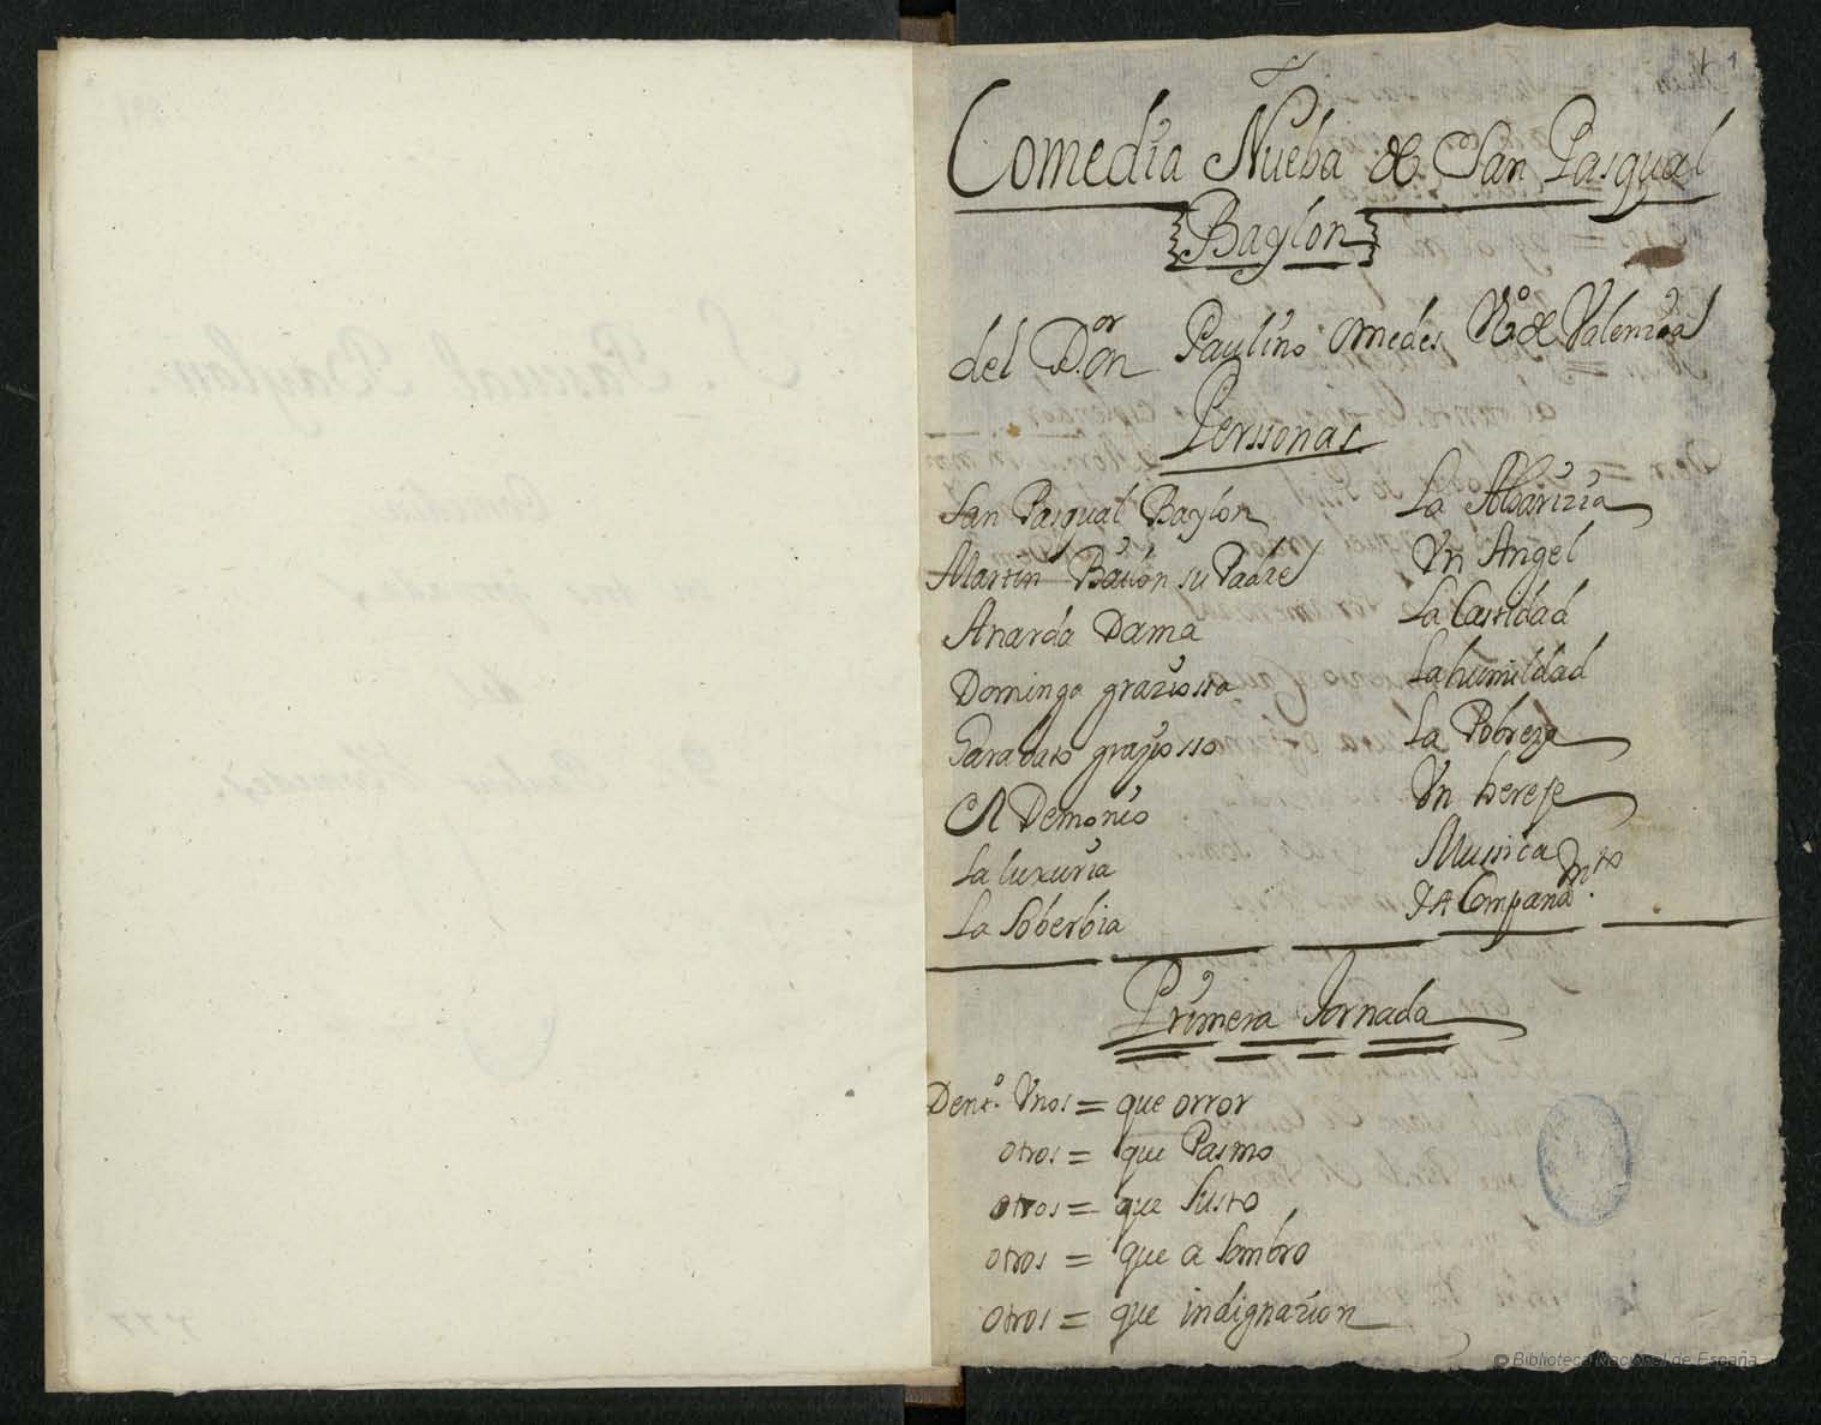 1
Comedia Nueba de San Pasqual
Baylon
del D.or Dn Paulino Omedes No de Valencia
Perssonas
San Pasqual Baylon
Martin Bailon su Padre
Anarda Dama
Dominga graziossa
Garabato graziosso
El Demonio
La luxuria
La Soberbia
La Abarizia
Vn Angel
La Castidad
La humildad
La Pobreza
Vn hereje
Mussica
Y Acompañamto.
Primera Jornada
Dentº. Vnos = que orror
otros = que Pasmo
otros = que Susto
otros = que a sombro
otros = que indignazion
Biblioteca Nacional de España